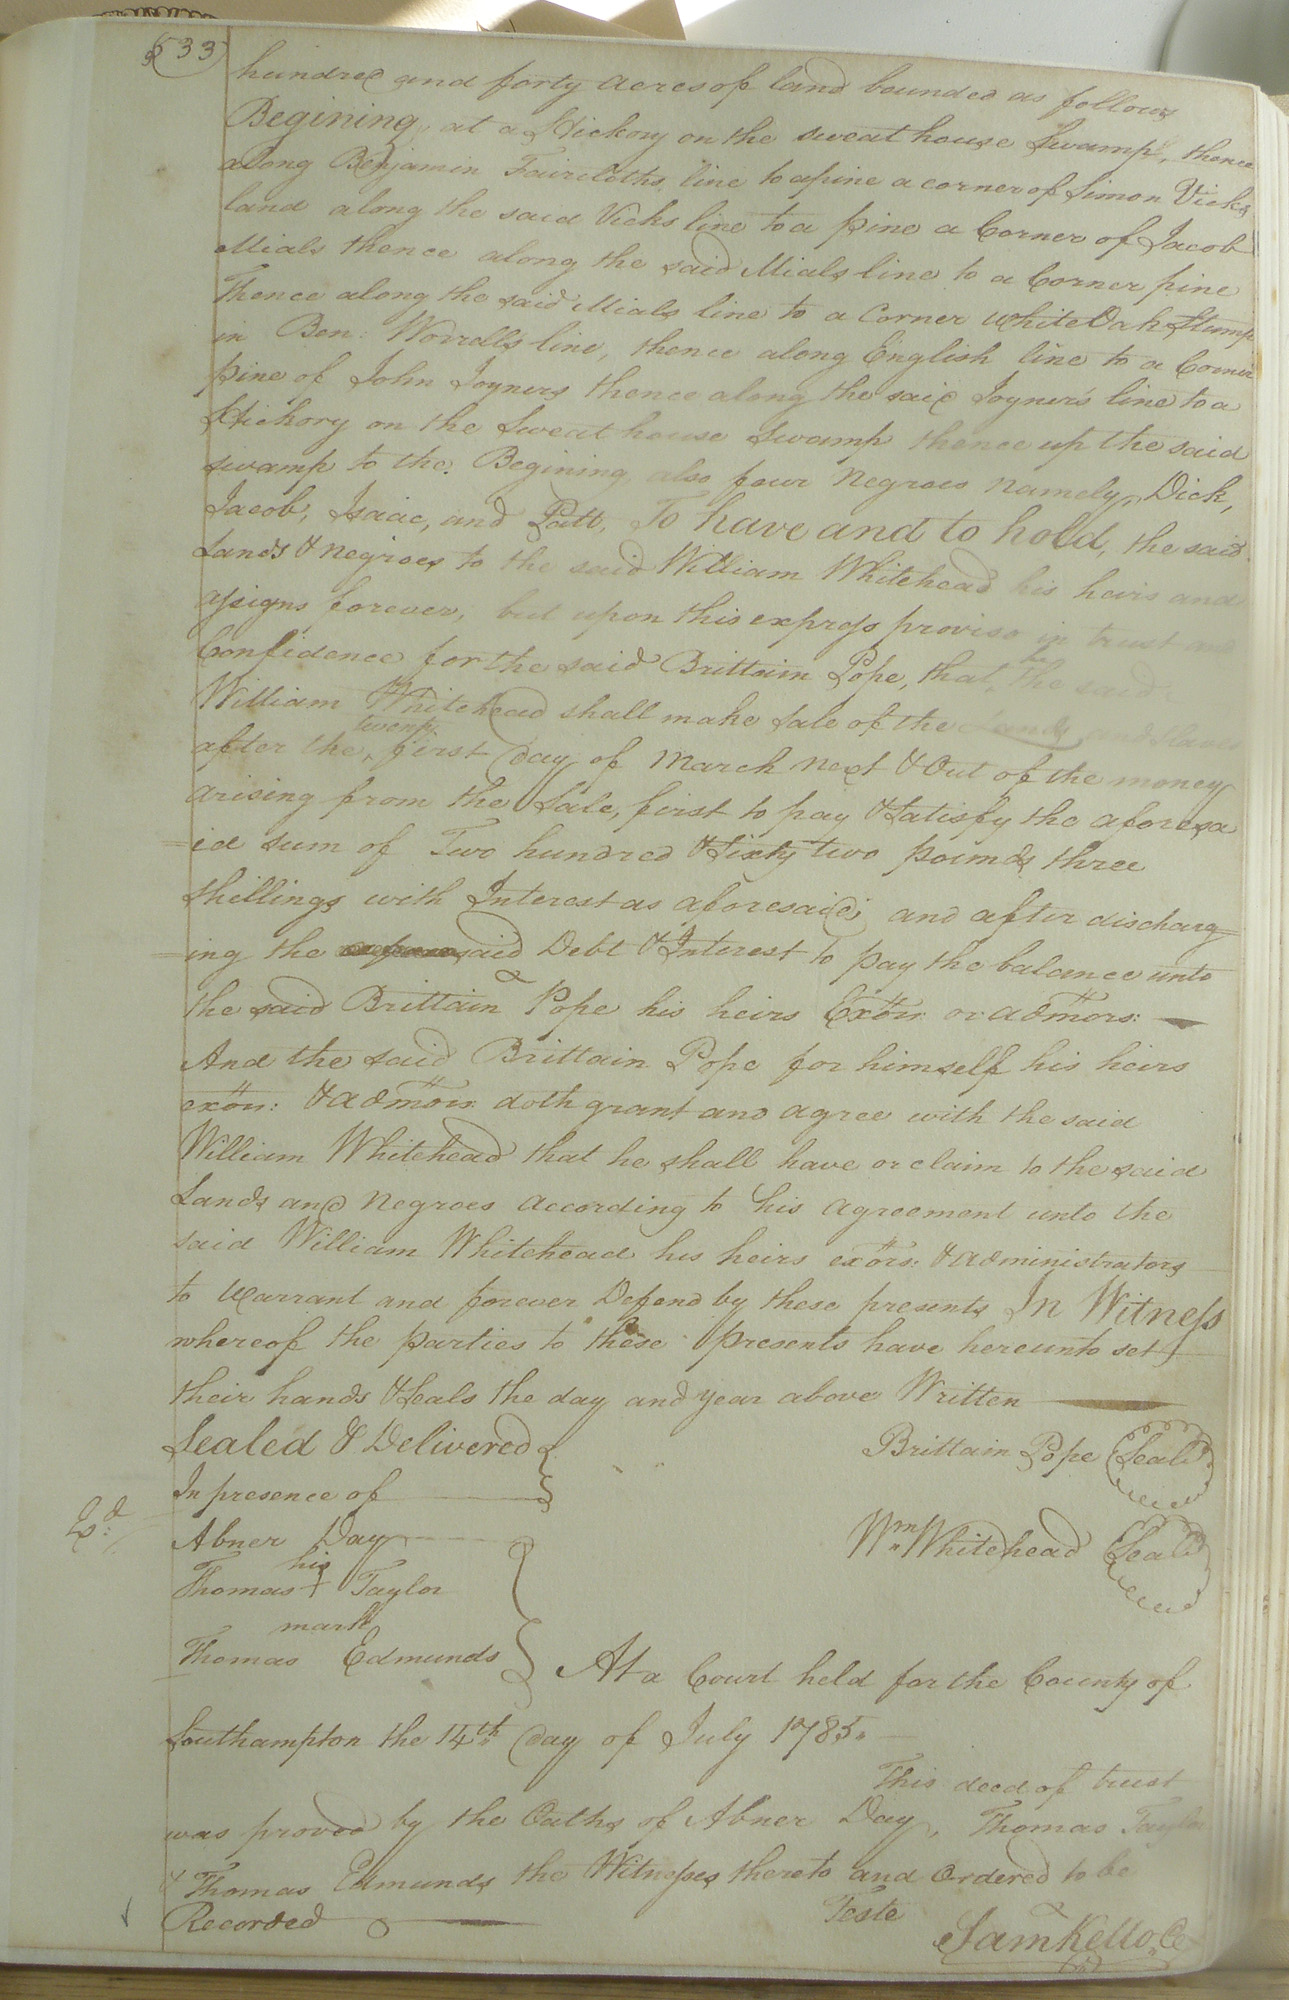 533
hundred and forty acres of land bounded as follows
Begining at a Hickory on the sweat house Swamp, thence
along Benjamin Faircloths line to a pine a corner of Simon Vicks
land along the said Vicks line to a pine a Corner of Jacob
Mials thence along the said Mials line to a Corner pine
Thence along the said Mials line to a Corner white Oak Stump
in Ben: Worrells line, thence along English line to a Corner
pine of John Joyners thence along the said Joyner's line to a
Hickory on the Sweat house Swamp thence up the said
swamp to the Begining also four Negroes namely, Dick,
Jacob, Isaac, and Patt, To have and to hold, the said
Lands & negroes to the said William Whitehead his heirs and
assigns forever, but upon this express proviso in trust and
Confidence for the said Brittain Pope, that he the said
William Whitehead shall make sale of the Lands and Slaves
after the twenty first day of March next & Out of the money
arising from the Sale, first to pay & Satisfy the aforesa
=id sum of Two hundred & Sixty two pounds three
shillings with Interest as aforesaid; and after discharg=
=ing the said Debt & Interest to pay the balance unto
the said Brittain Pope his heirs Exors: or admors:
And the said Brittain Pope for himself his heirs
exors: & admors: doth grant and agree with the said
William Whitehead that he shall have or claim to the said
Lands and Negroes according to his agreement unto the
said William Whitehead his heirs exors: & administrators
to Warrant and forever Defend by these presents In Witness
whereof the parties to these presents have hereunto set
their hands & Seals the day and year above Written
Sealed & Delivered
Brittain Pope Seal
In presence of
Abner Day
Wm Whitehead Seal
Ex.d
his
Thomas + Taylor
mark
Thomas Edmunds
At a Court held for the County of
Southampton the 14th day of July 1785.
This deed of trust
was proved by the Oaths of Abner Day, Thomas Taylor
& Thomas Edmunds the Witnesses thereto and Ordered to be
Recorded
Teste
Sam Kello, Ce